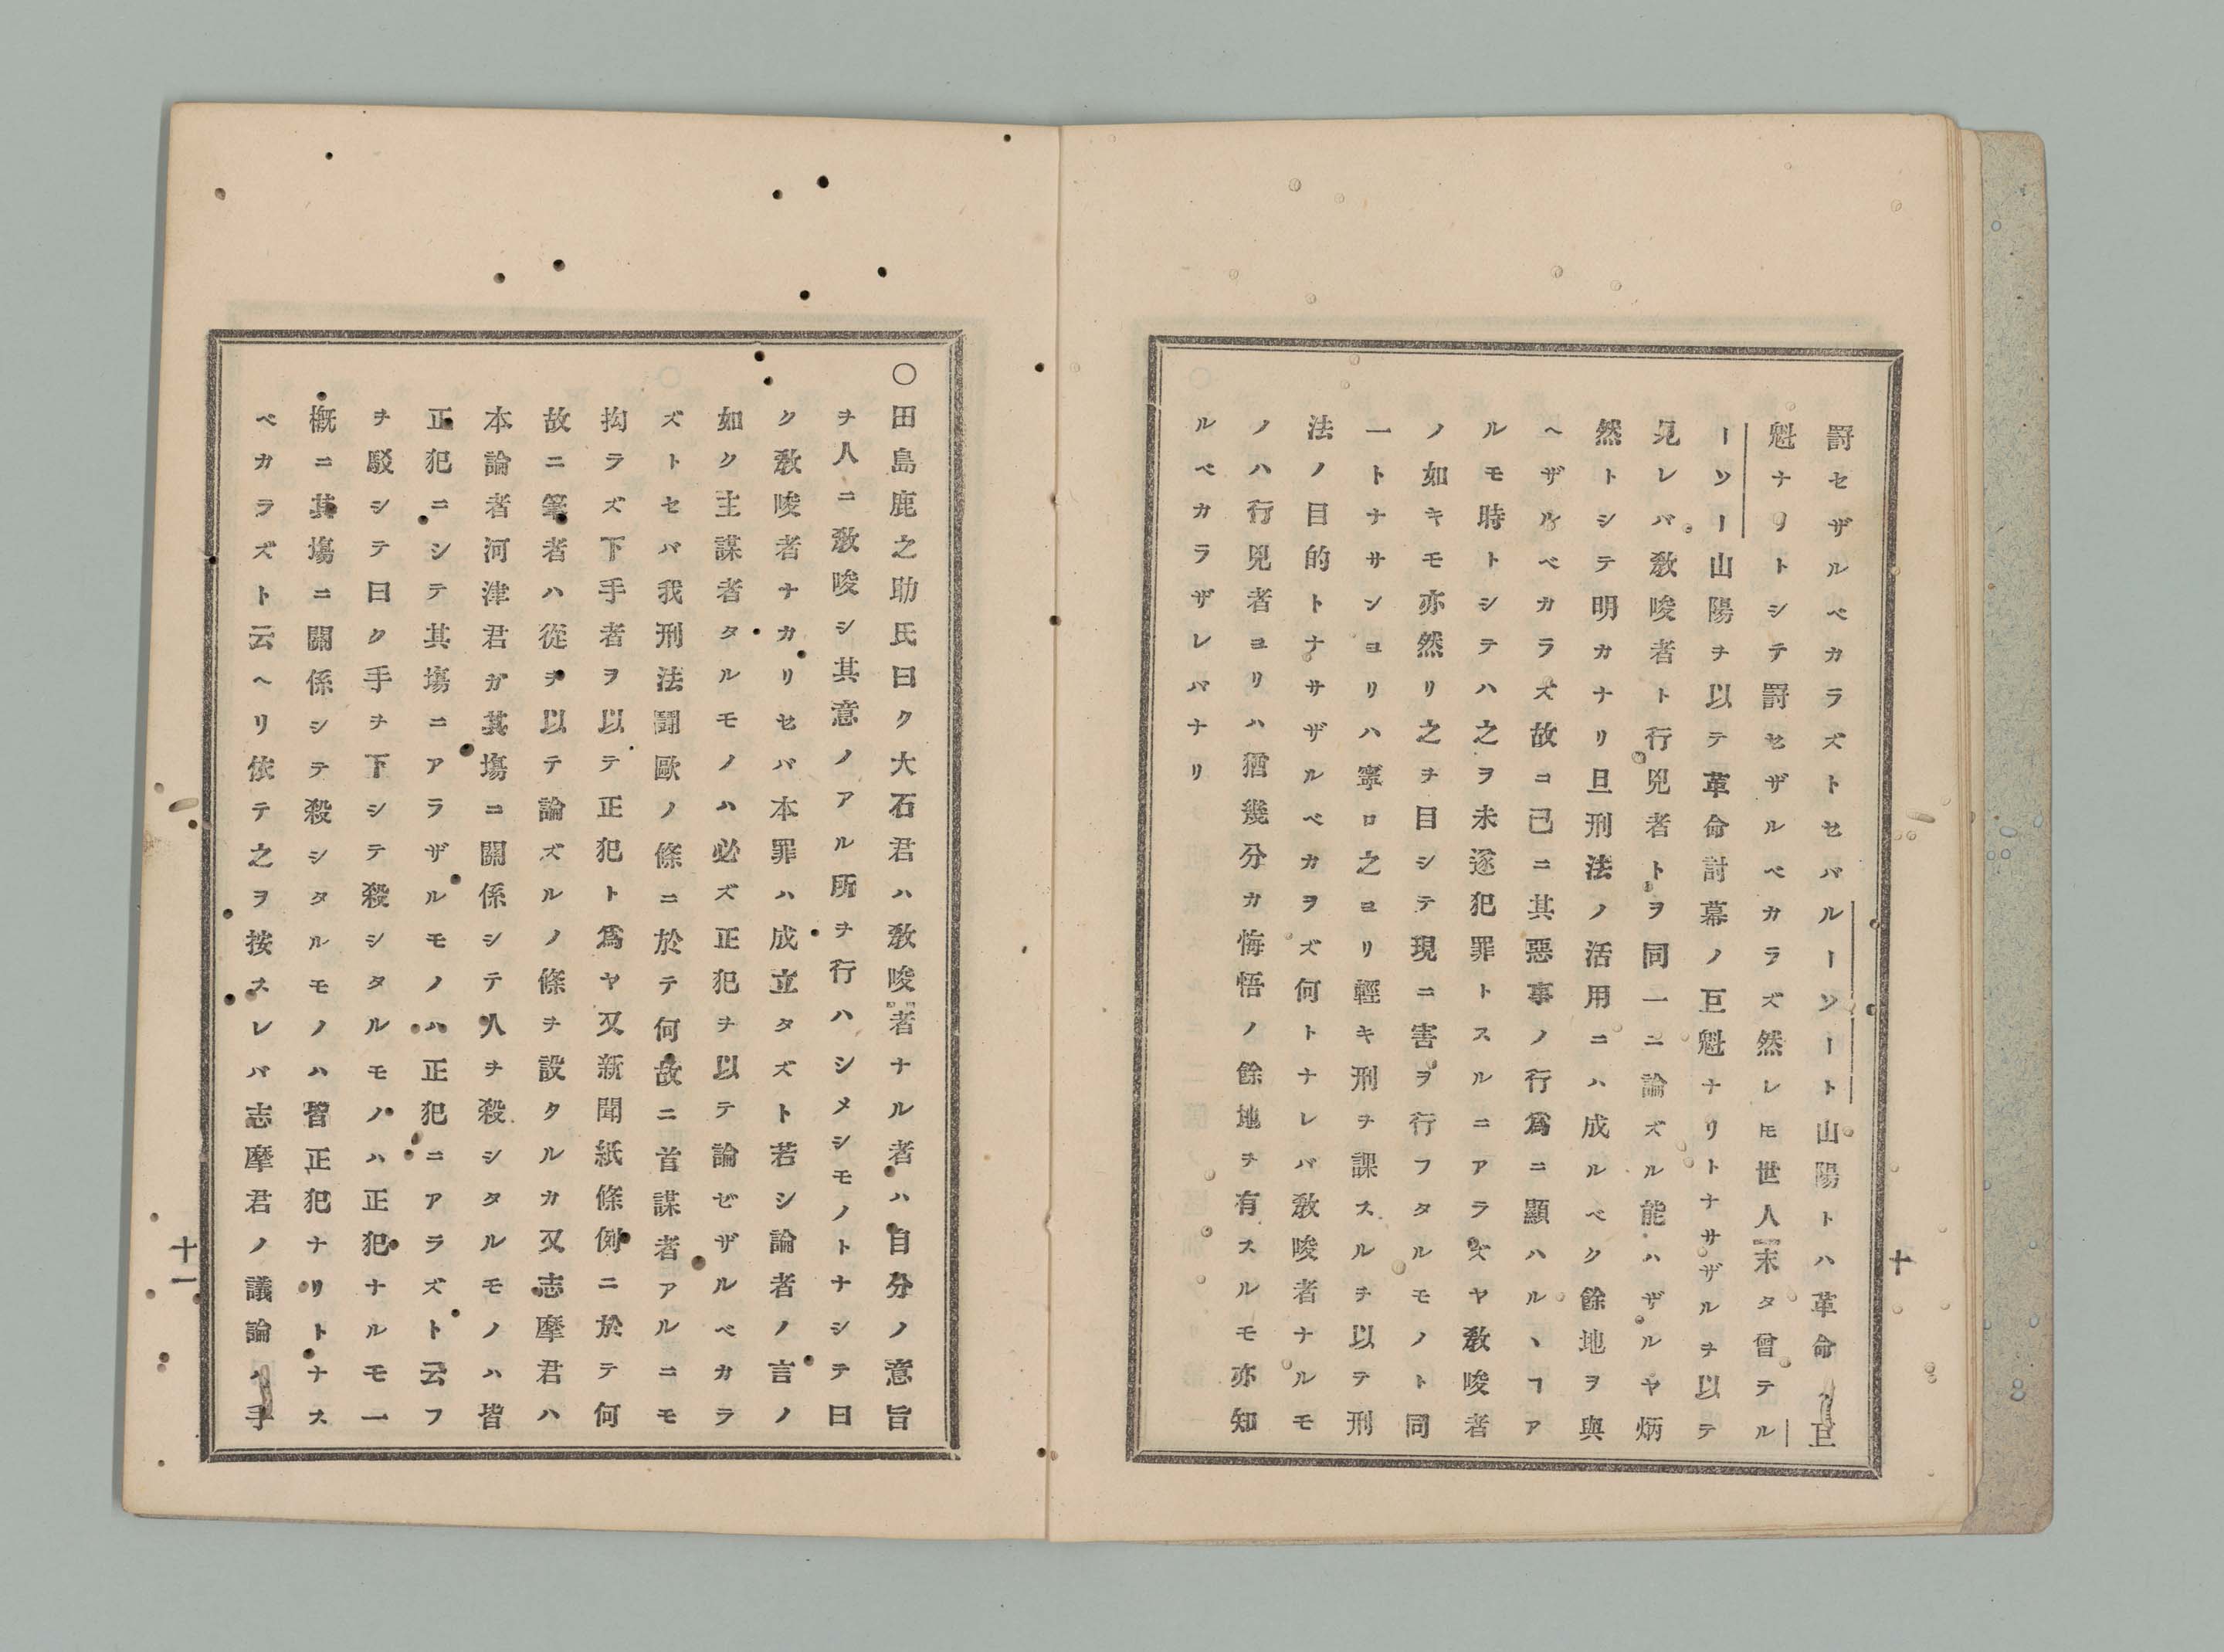 罸セザルベカラズトセバルーソート山陽トハ革命ノ巨
魁ナリトシテ罸セザルベカラズ然レ𪜈世人末タ曾テル
ーソー山陽ヲ以テ革命討幕ノ巨魁ナリトナサザルヲ以テ
見レバ敎唆者ト行兇者トヲ同一ニ論ズル能ハザルヤ炳
然トシテ明カナリ且刑法ノ活用ニハ成ルベク餘地ヲ與
ヘザルベカラズ故ニ已ニ其惡事ノ行爲ニ顯ハルヽヿア
ルモ時トシテハ之ヲ未遂犯罪トスルニアラズヤ敎唆者
ノ如キモ亦然リ之ヲ目シテ現ニ害ヲ行フタルモノト同
一トナサンヨリハ寧ロ之ヨリ輕キ刑ヲ課スルヲ以テ刑
法ノ目的トナサザルベカヲズ何トナレバ敎唆者ナルモ
ノハ行兇者ヨリハ猶幾分カ悔悟ノ餘地ヲ有スルモ亦知
ルベカラザレバナリ
十
○田島鹿之助氏曰ク大石君ハ敎唆者ナル者ハ自分ノ意旨
ヲ人ニ敎唆シ其意ノアル所ヲ行ハシメシモノトナシテ曰
ク敎唆者ナカリセバ本罪ハ成立タズト若シ論者ノ言ノ
如ク主謀者タルモノハ必ズ正犯ヲ以テ論ゼザルベカラ
ズトセバ我刑法鬪歐ノ條ニ於テ何故ニ首謀者アルニモ
拘ラズ下手者ヲ以テ正犯ト爲ヤ又新聞紙條例ニ於テ何
故ニ筆者ハ從ヲ以テ論ズルノ條ヲ設クルカ又志摩君ハ
本論者河津君ガ其塲ニ關係シテ人ヲ殺シタルモノハ皆
正犯ニシテ其塲ニアラザルモノハ正犯ニアラズト云フ
ヲ駁シテ曰ク手ヲ下シテ殺シタルモノハ正犯ナルモ一
槪ニ其塲ニ關係シテ殺シタルモノハ皆正犯ナリトナス
ベカラズト云ヘリ依テ之ヲ按スレバ志摩君ノ議論ハ手
十一